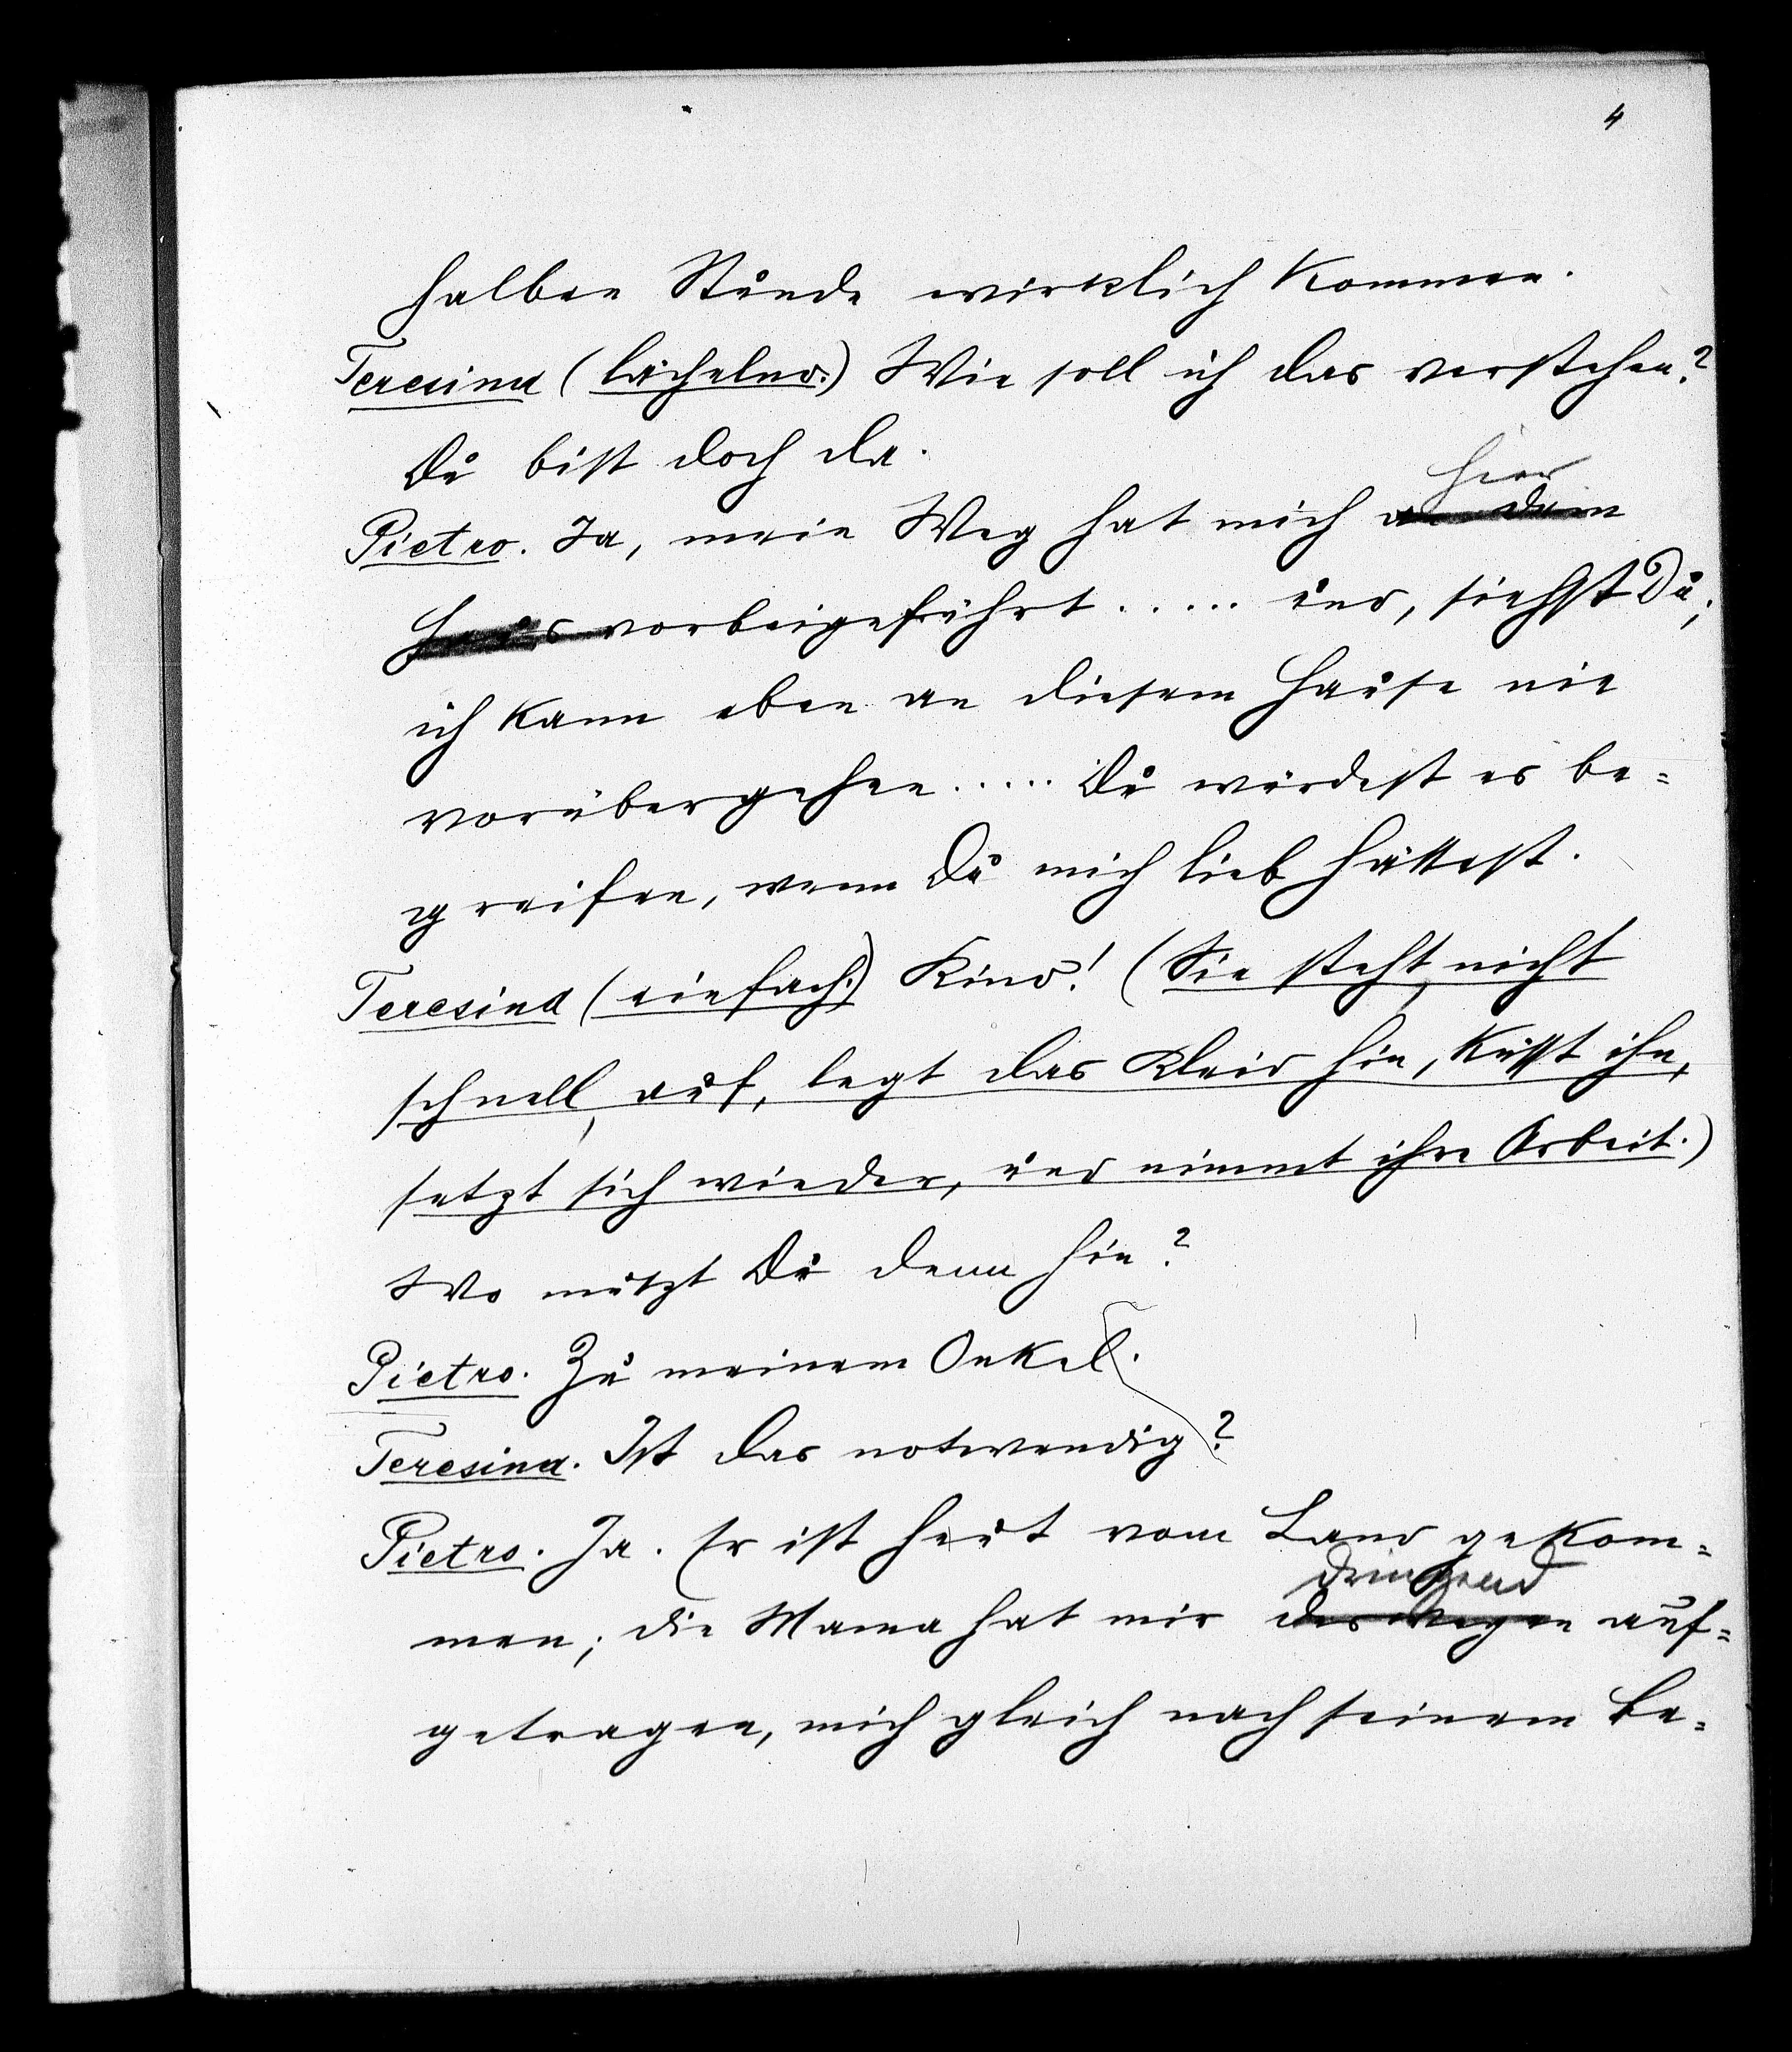 4
halben Stunde wirklich kommen.
Teresina (lächelnd.) Wie soll ich das verstehen?
Du bist doch da.
hier
Pietro. Ja, mein Weg hat mich an dem
Haus vorbeigeführt ..... und, siehst Du,
ich kann eben an diesem Hause nie
vorübergehen ..... Du würdest es be=
greifen, wenn Du mich lieb hättest.
Teresina (einfach.) Kind! (Sie steht, nicht
schnell, auf, legt das Kleid hin, küsst ihn,
setzt sich wieder, und nimmt ihre Arbeit.)
Wo mußt Du denn hin?
Pietro. Zu meinem Onkel.
Teresina. Ist das notwendig?
Pietro. Ja. Er ist heut vom Land gekom=
dringend
men; die Mama hat mir deswegen auf=
getragen, mich gleich nach seinem Be=